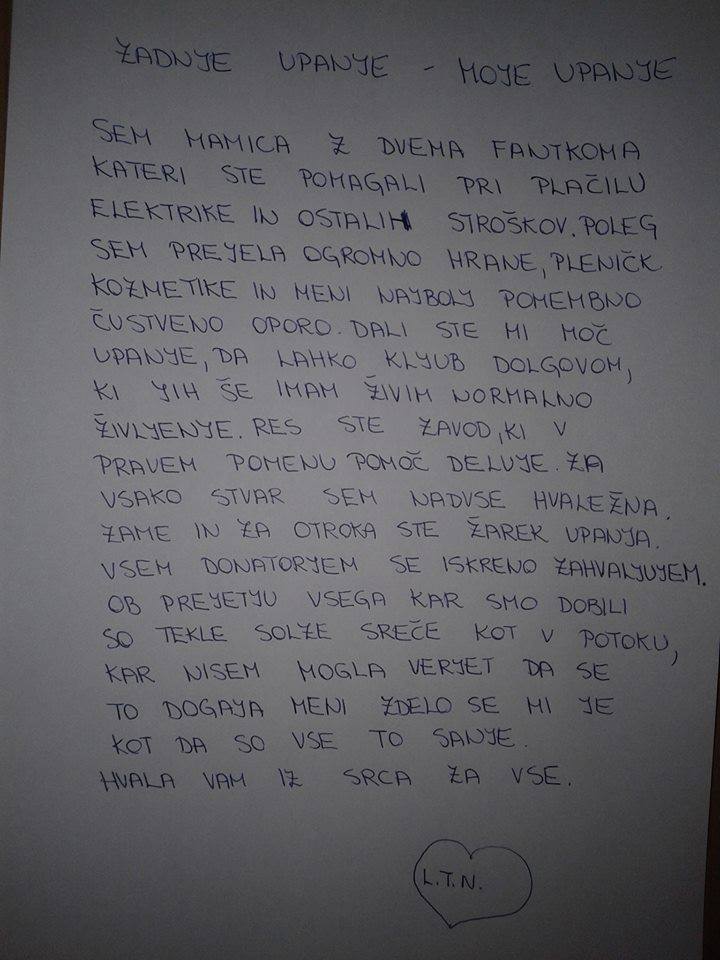 ZADNJE UPANJE - MOJE UPANJE
SEM MAMICA Z DVEMA FANTKOMA
KATERI STE POMAGALI PRI PLAČILU
ELEKTRIKE IN OSTALIH STROŠKOV. POLEG
SEM PREJELA OGROMNO HRANE, PLENIČK
KOZMETIKE IN MENI NAJBOLJ POMEMBNO
ČUSTVENO OPORO. DALI STE MI MOČ
UPANJE, DA LAHKO KLJUB DOLGOVOM,
KI JIH ŠE IMAM ŽIVIM NORMALNO
ŽIVLJENJE. RES STE ZAVOD, KI V
PRAVEM POMENU POMOČ DELUJE. ZA
VSAKO STVAR SEM NADVSE HVALEŽNA.
ZAME IN ZA OTROKA STE ŽAREK UPANJA.
VSEM DONATORJEM SE ISKRENO ZAHVALJUJEM.
OB PREJETJU VSEGA KAR SMO DOBILI
SO TEKLE SOLZE SREČE KOT V POTOKU,
KAR NISEM MOGLA VERJET DA SE
TO DOGAJA MENI ZDELO SE MI JE
KOT DA SO VSE TO SANJE.
HVALA VAM IZ SRCA ZA VSE.
L.T.N.